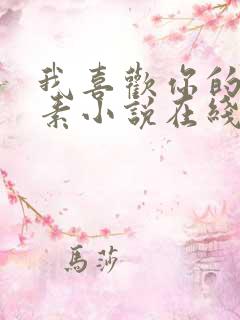 我喜歡你的
素小説在綫
馬莎